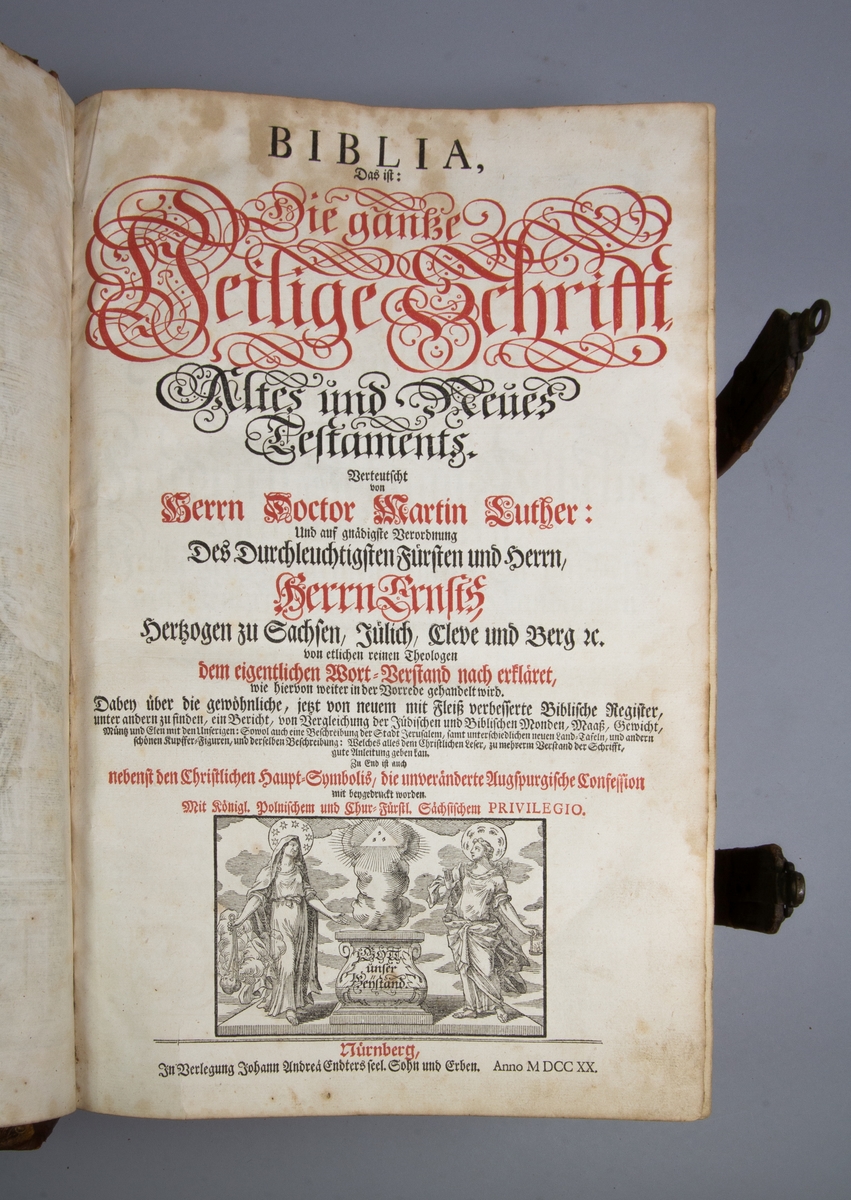 BIBLIA,
Das ist:
Die gantze
Heilige Schrifft
Altes und Neues
Testaments.
Verteutscht
von
Herrn Doctor Martin Luther:
Und auf gnädigste Verordnung
Des Durchleuchtigsten Fürsten und Herrn,
Herrn Ernsts
Hertzogen zu Sachsen, Jülich, Cleve und Berg ꝛc.
von etlichen reinen Theologen
dem eigentlichen Wort-Verstand nach erkläret,
wie hiervon weiter in der Vorrede gehandelt wird.
Dabey über die gewöhnliche, jetzt von neuem mit Fleiß verbesserte Biblische Register,
unter andern zu finden, ein Bericht, von Vergleichung der Jüdischen und Biblischen Monden, Maaß, Gewicht,
Müntz und Elen mit den Unserigen: Sowol auch eine Beschreibung der Stadt Jerusalem, samt unterschiedlichen neuen Land-Tafeln, und andern
schönen Kupffer-Figuren, und derselben Beschreibung: Welches alles dem Christlichen Leser, zu mehrerm Verstand der Schrifft,
gute Anleitung geben kan.
Zu End ist auch
nebenst den Christlichen Haupt-Symbolis, die unveränderte Augspurgische Confession
mit beygedruckt worden.
Mit Königl. Polnischem und Chur-Fürstl. Sächsischem PRIVILEGIO.
GOTT
unser
Beystand.
Nürnberg,
In Verlegung Johann Andreä Endters seel. Sohn und Erben. Anno M DCC XX.